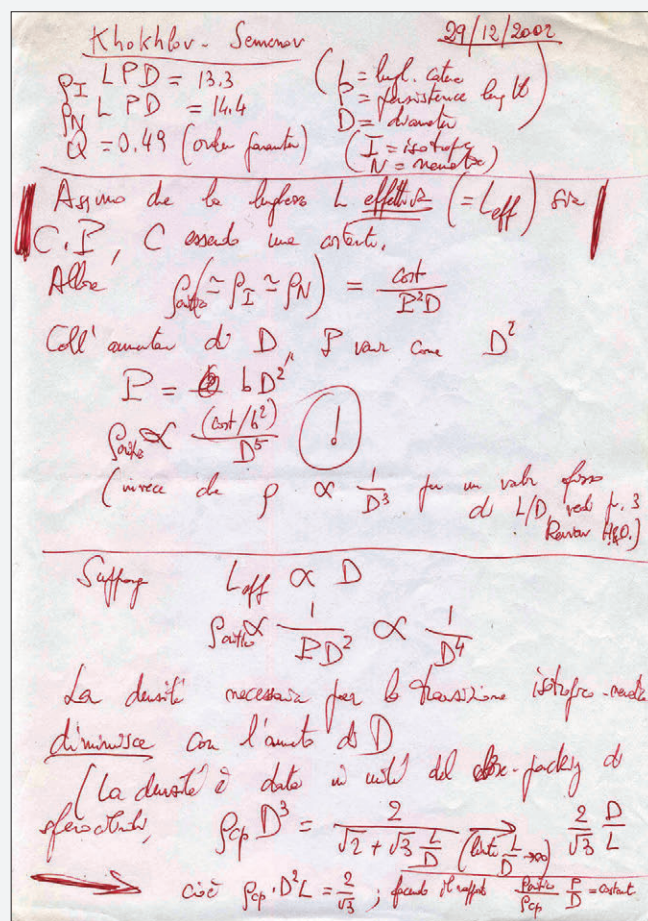 Khokhlov - Semenov 29/12/2002
ρ_I L P D = 13.3 (L = lugh. catena
ρ_N L P D = 14.4 P = persistence length
Q = 0.49 (order parameter) D = diametro)
(I = isotropo
N = nematico)
Assumo che la lunghezza L effettiva (= L_eff) sia
C.P, C essendo una costante.
Allora ρ_critico (≃ ρ_I ≃ ρ_N) = cost / P²D
Coll' aumentare di D, P varia come D²
P = b D²,
ρ_critico ∝ (cost/b²) / D⁵ !
(invece che ρ ∝ 1/D³ per un valore fisso
di L/D, vedi p. 3
Review)
L_eff ∝ D
ρ_critico ∝ 1/PD² ∝ 1/D⁴
La densità necessaria per la transizione isotropo-nematico
diminuisce con l'aumento di D
(La densità è data in unità del close-packing di
sferocilindri, ρ_cp D³ = 2 / (√2 + √3 L/D) → (limite L/D → ∞) 2/√3 D/L
cioè ρ_cp · D²L = 2/√3 ; facendo il rapporto ρ_critico/ρ_cp P/D = costant.